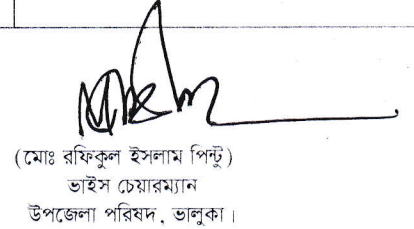 (মোঃ রফিকুল ইসলাম পিন্টু)
ভাইস চেয়ারম্যান
উপজেলা পরিষদ, ভালুকা।